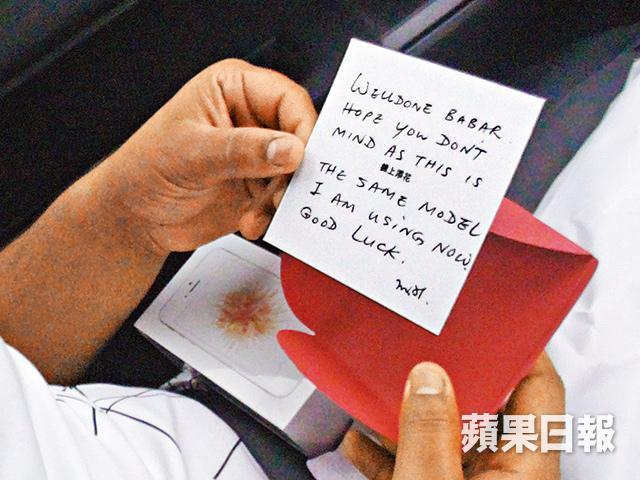 WELLDONE BABAR
HOPE YOU DONT
MIND AS THIS IS
THE SAME MODEL
I AM USING NOW.
GOOD LUCK.
蘋果日報